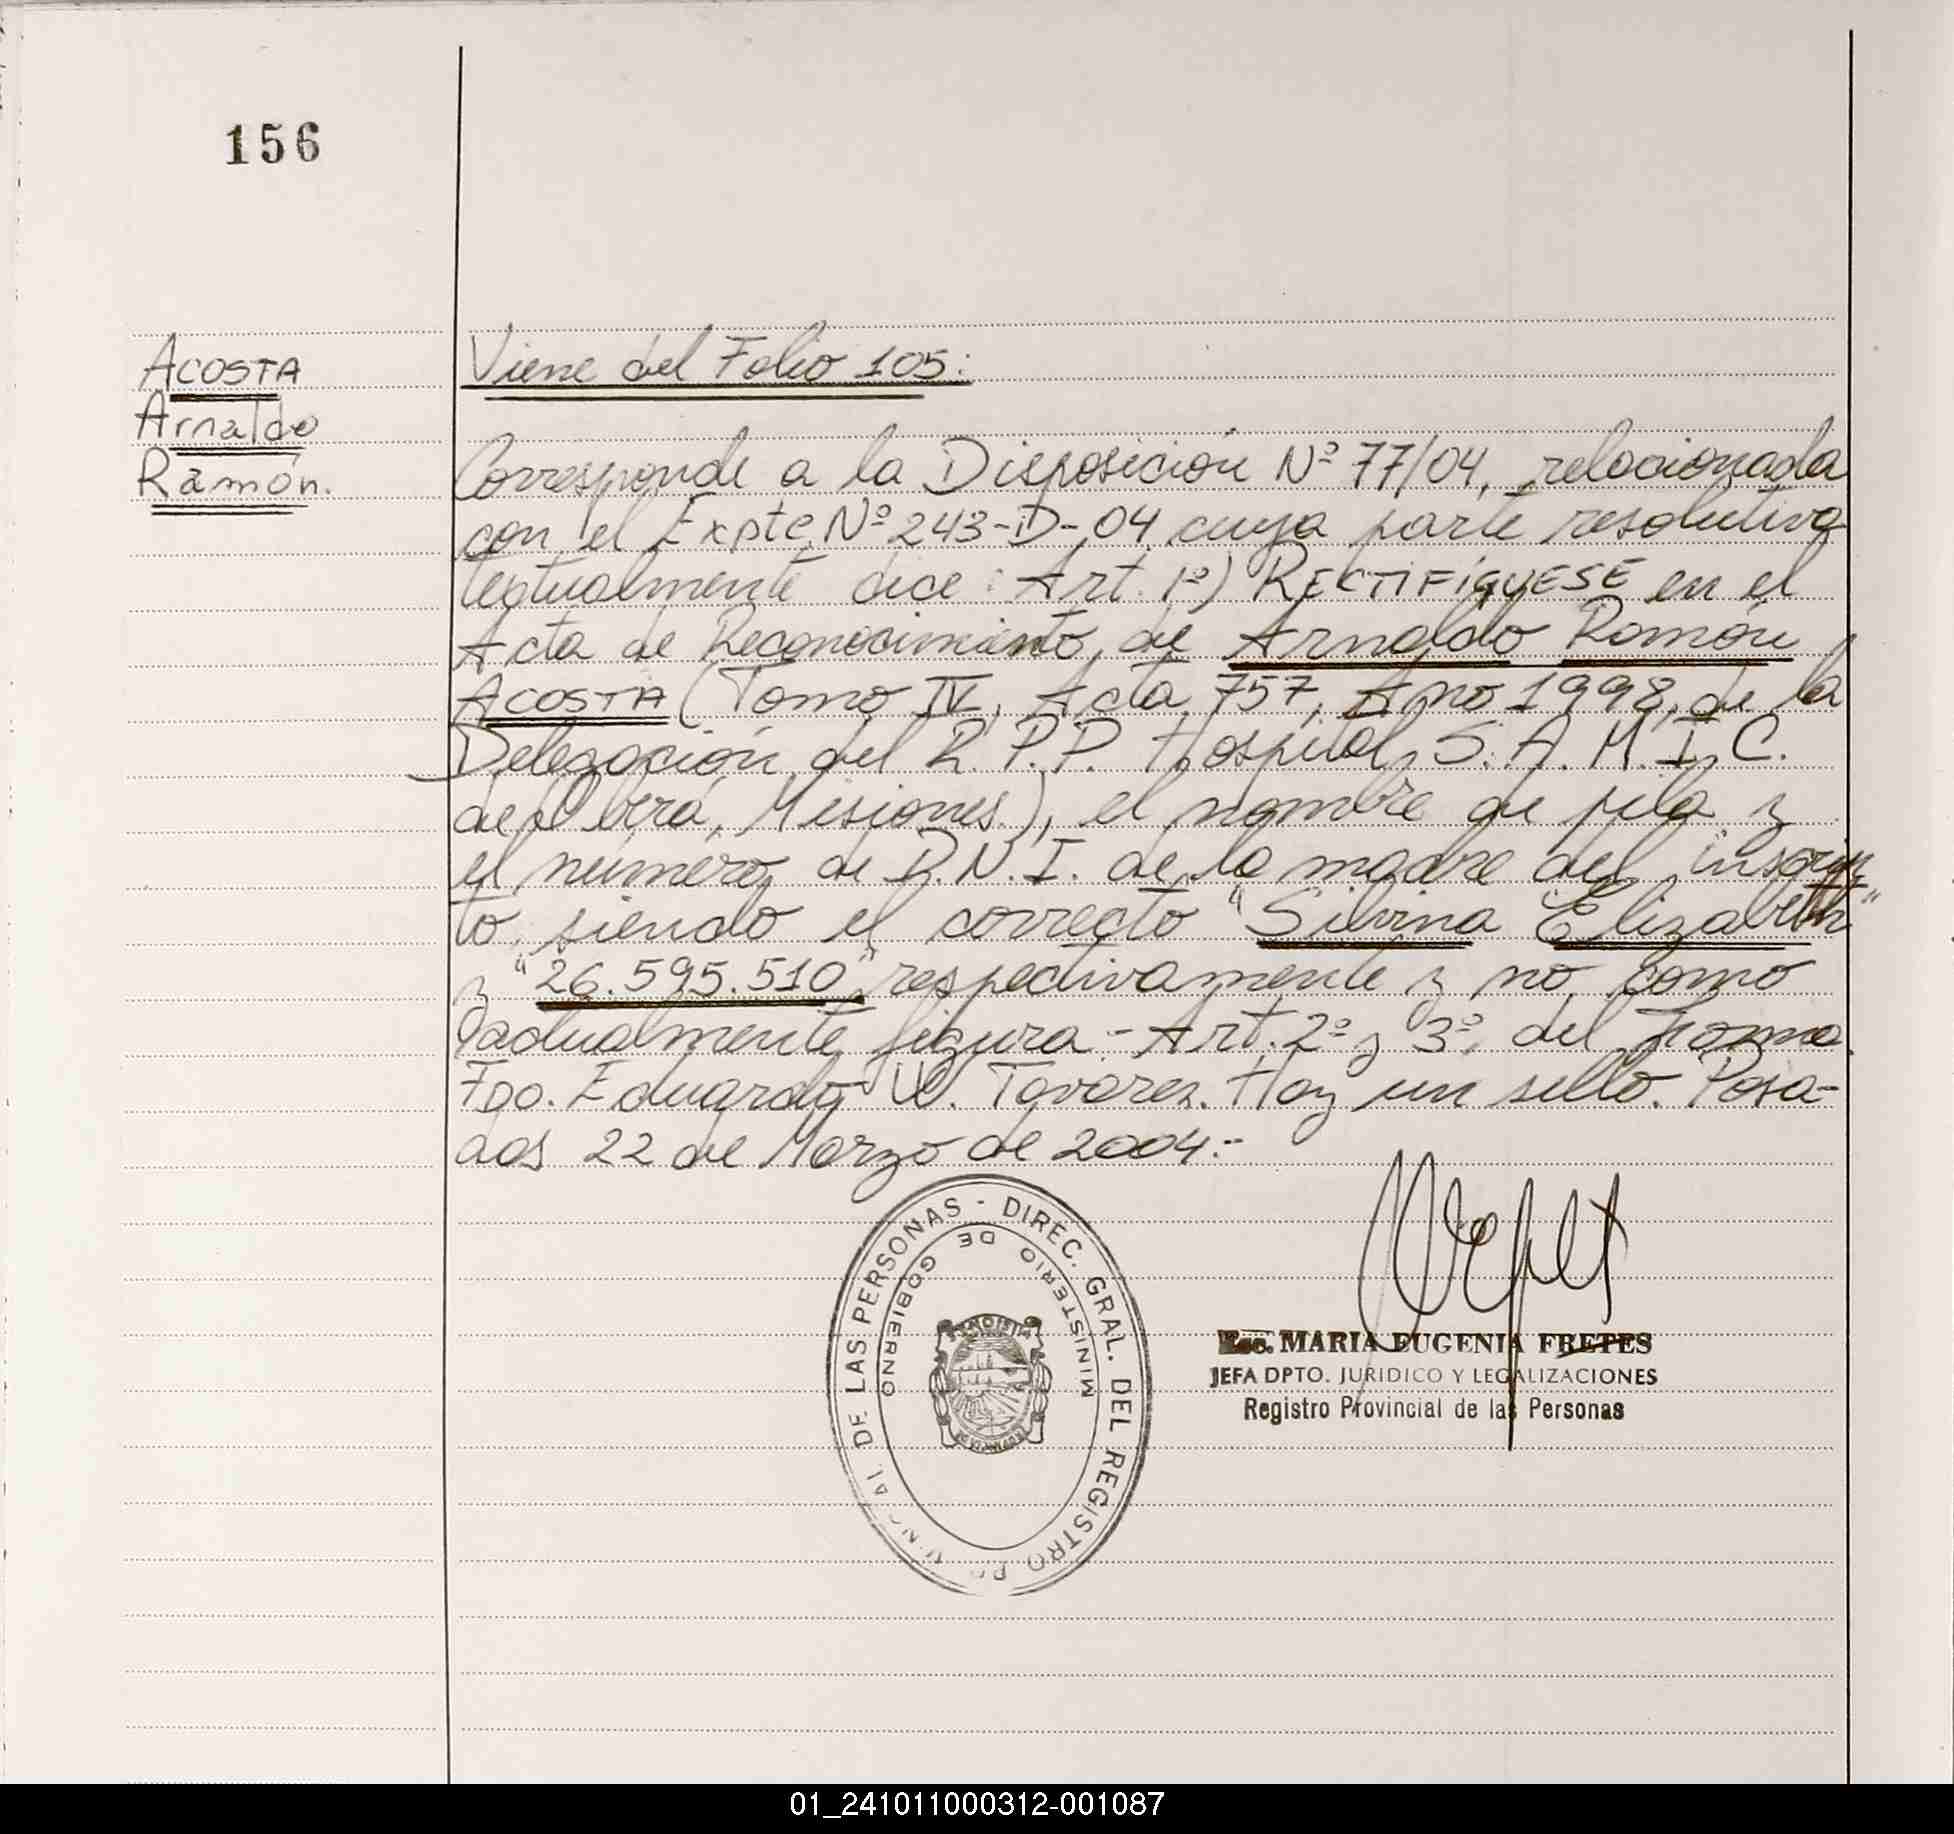 156
ACOSTA
Arnaldo
Ramón.
Viene del Folio 105:
Corresponde a la Disposición Nº 77/04, relacionada
con el Expte. Nº 243-D-04 cuya parte resolutiva
textualmente dice: Art. 1º) RECTIFíQUESE en el
Acta de Reconocimiento de Arnaldo Ramón
ACOSTA (Tomo IV, Acta 757, Año 1998, de la
Delegación del R.P.P. Hospital S.A.M.I.C.
de Oberá, Misiones), el nombre de pila y
el número de D.N.I. de la madre del inscrip
to, siendo el correcto "Silvina Elizabeth"
y "26.595.510" respectivamente y no como
actualmente figura.- Art. 2º y 3º, del
Fdo. Eduardo W. Tavares. Hay un sello. Posa-
das 22 de Marzo de 2004.-
DIREC. GRAL. DEL REGISTRO DE LAS PERSONAS -
MINISTERIO DE GOBIERNO
Esc. MARIA EUGENIA FRETES
JEFA DPTO. JURIDICO Y LEGALIZACIONES
Registro Provincial de las Personas
01_241011000312-001087